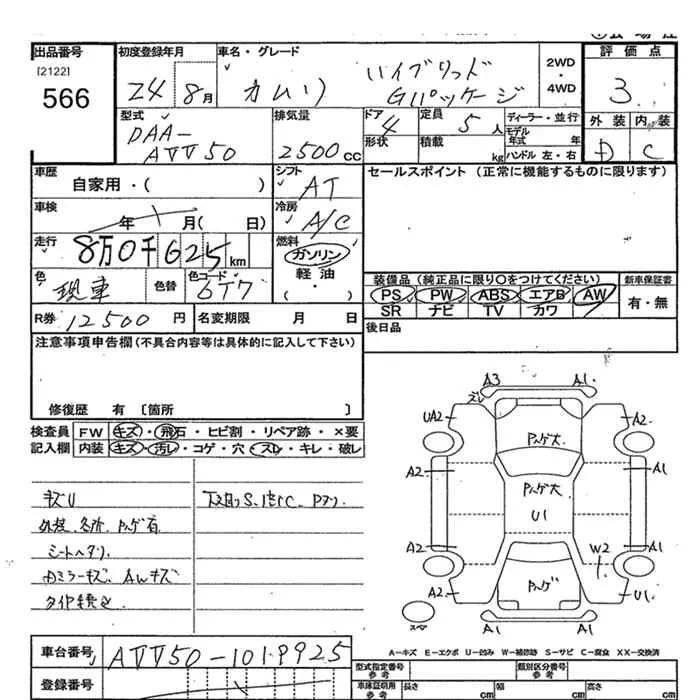 出品番号
[2122]
566
初度登録年月
24 8月
車名・グレード
カムリ ハイブリッド
Gパッケージ
2WD
・
4WD
評価点
3
外装 内装
D C
型式
DAA-
AVV50
排気量
2500cc
ドア
4
形状
定員
5人
積載
kg
ディーラー・並行
モデル
年式 年
ハンドル 左・右
車歴
自家用・( )
シフト
AT
車検
年 月( 日)
冷房
A/C
走行
8万0千625km
燃料
ガソリン
軽油
( ・ )
色
現車
色替
色コード
6T7
R券 12500円
名変期限 月 日
セールスポイント (正常に機能するものに限ります)
装備品 (純正品に限り〇をつけてください)
PS PW ABS エアB AW
SR ナビ TV カワ
新車保証書
有・無
後日品
注意事項申告欄 (不具合内容等は具体的に記入して下さい)
修復歴 有 〔箇所 〕
検査員
記入欄
FW キズ・飛石・ヒビ割・リペア跡・×要
内装 キズ・汚レ・コゲ・穴・スレ・キレ・破レ
キズU
外板、各所、ハゲ有
シートヘタリ
Dミラーキズ、AWキズ
下廻りS、1部C、Pアリ
A3 A1
ズレ
UA2 A2
ハゲ大
A2 A1
ハゲ大
U1
A2 A1
W2
A2 U1
ハゲ
スペア
A1 A1
A-キズ E-エクボ U-凹み W-補修跡 S-サビ C-腐食 XX-交換済
車台番号
AVV50-1019925
登録番号
型式指定番号
参考
類別区分番号
参考
車庫証明用
参考
長さ cm
幅 cm
高さ cm